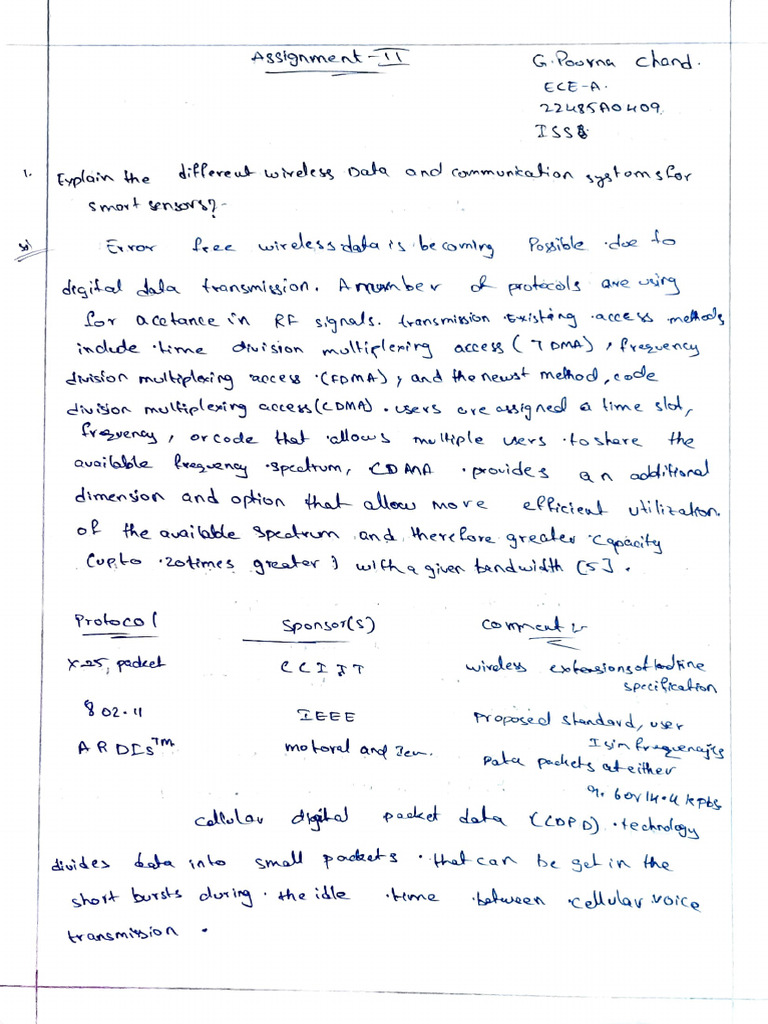 Assignment-II
G. Poorna Chand.
ECE-A.
22485A0409
ISS
1. Explain the different wireless Data and communication systems for
smart sensors?
Sol
Error free wireless data is becoming Possible due to
digital data transmission. A number of protocols are using
for acetance in RF signals. transmission Existing access methods
include time division multiplexing access (TDMA), frequency
division multiplexing access (FDMA), and the newst method, code
division multiplexing access (CDMA). users are assigned a time slot,
frequency, or code that allows multiple users to share the
available frequency spectrum, CDMA provides an additional
dimension and option that allow more efficient utilization.
of the available spectrum and therefore greater capacity
(upto 20times greater) with a given bandwidth [5].
Protocol Sponsor(s) comment
X-25, packet CCITT wireless extensions of landline
specification
802.11 IEEE proposed standard, user
Isim frequencies
ARDIS™ motoral and Ibm. Data packets at either
9.6 or 14.4 kpbs
cellular digital packet data (CDPD) technology
divides data into small packets that can be get in the
short bursts during the idle time between cellular voice
transmission.